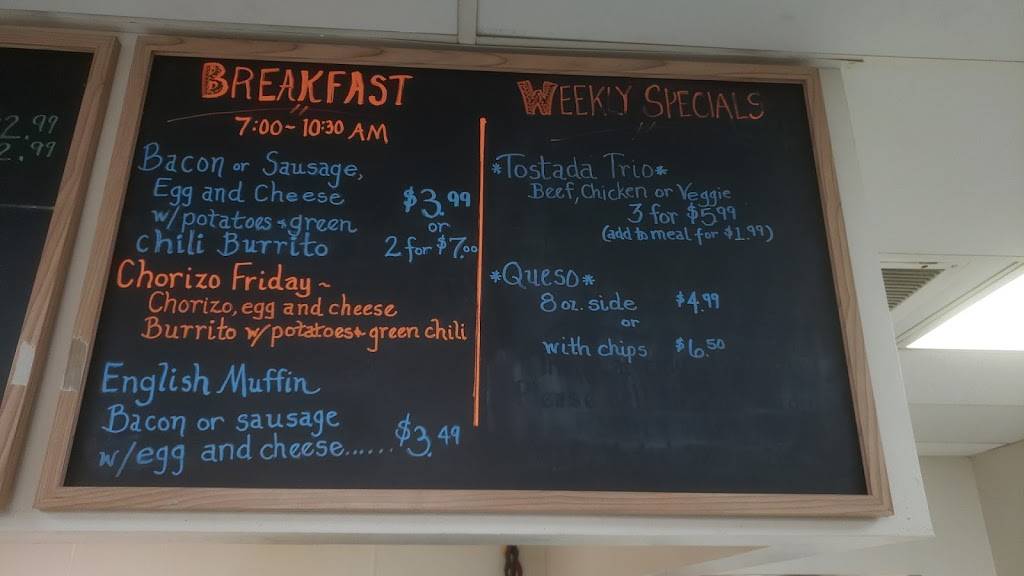 2.99
2.99
BREAKFAST
7:00~10:30 AM
Bacon or Sausage,
Egg and Cheese $3.99
w/potatoes & green or
chili Burrito 2 for $7.00
Chorizo Friday ~
Chorizo, egg and cheese
Burrito w/potatoes & green chili
English Muffin
Bacon or sausage
w/egg and cheese...... $3.49
WEEKLY SPECIALS
*Tostada Trio*
Beef, Chicken or Veggie
3 for $5.99
(add to meal for $1.99)
*Queso*
8 oz. side $4.99
or
with chips $6.50